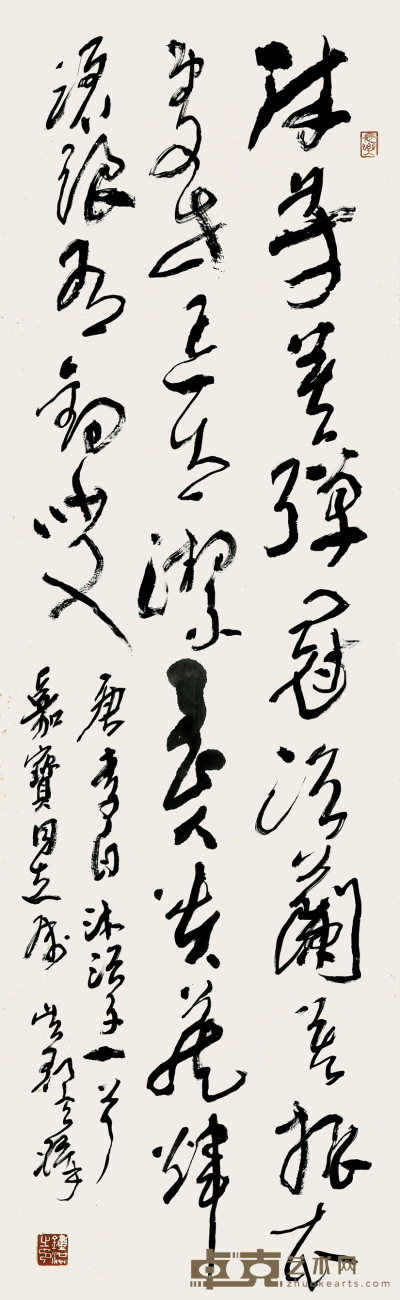 沐芳莫彈冠浴蘭莫振衣
處世忌太潔至人貴藏輝
滄浪有釣叟
唐李白沐浴子一首
嘉寶同志屬
卓克艺术网
zhuokearts.com